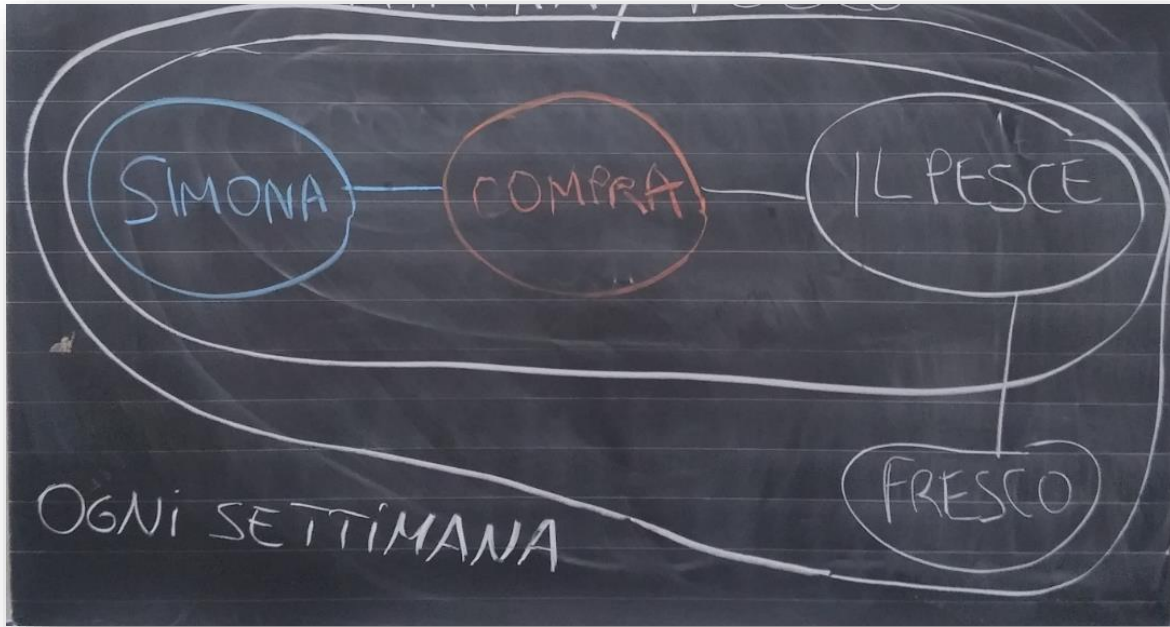 SIMONA COMPRA IL PESCE
FRESCO
OGNI SETTIMANA